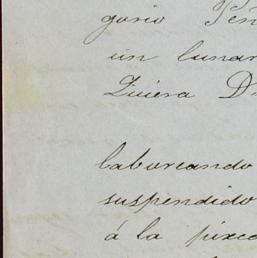 gorio Peñ
un lunar
Ziviera D
laboreando
suspendido
á la pixca